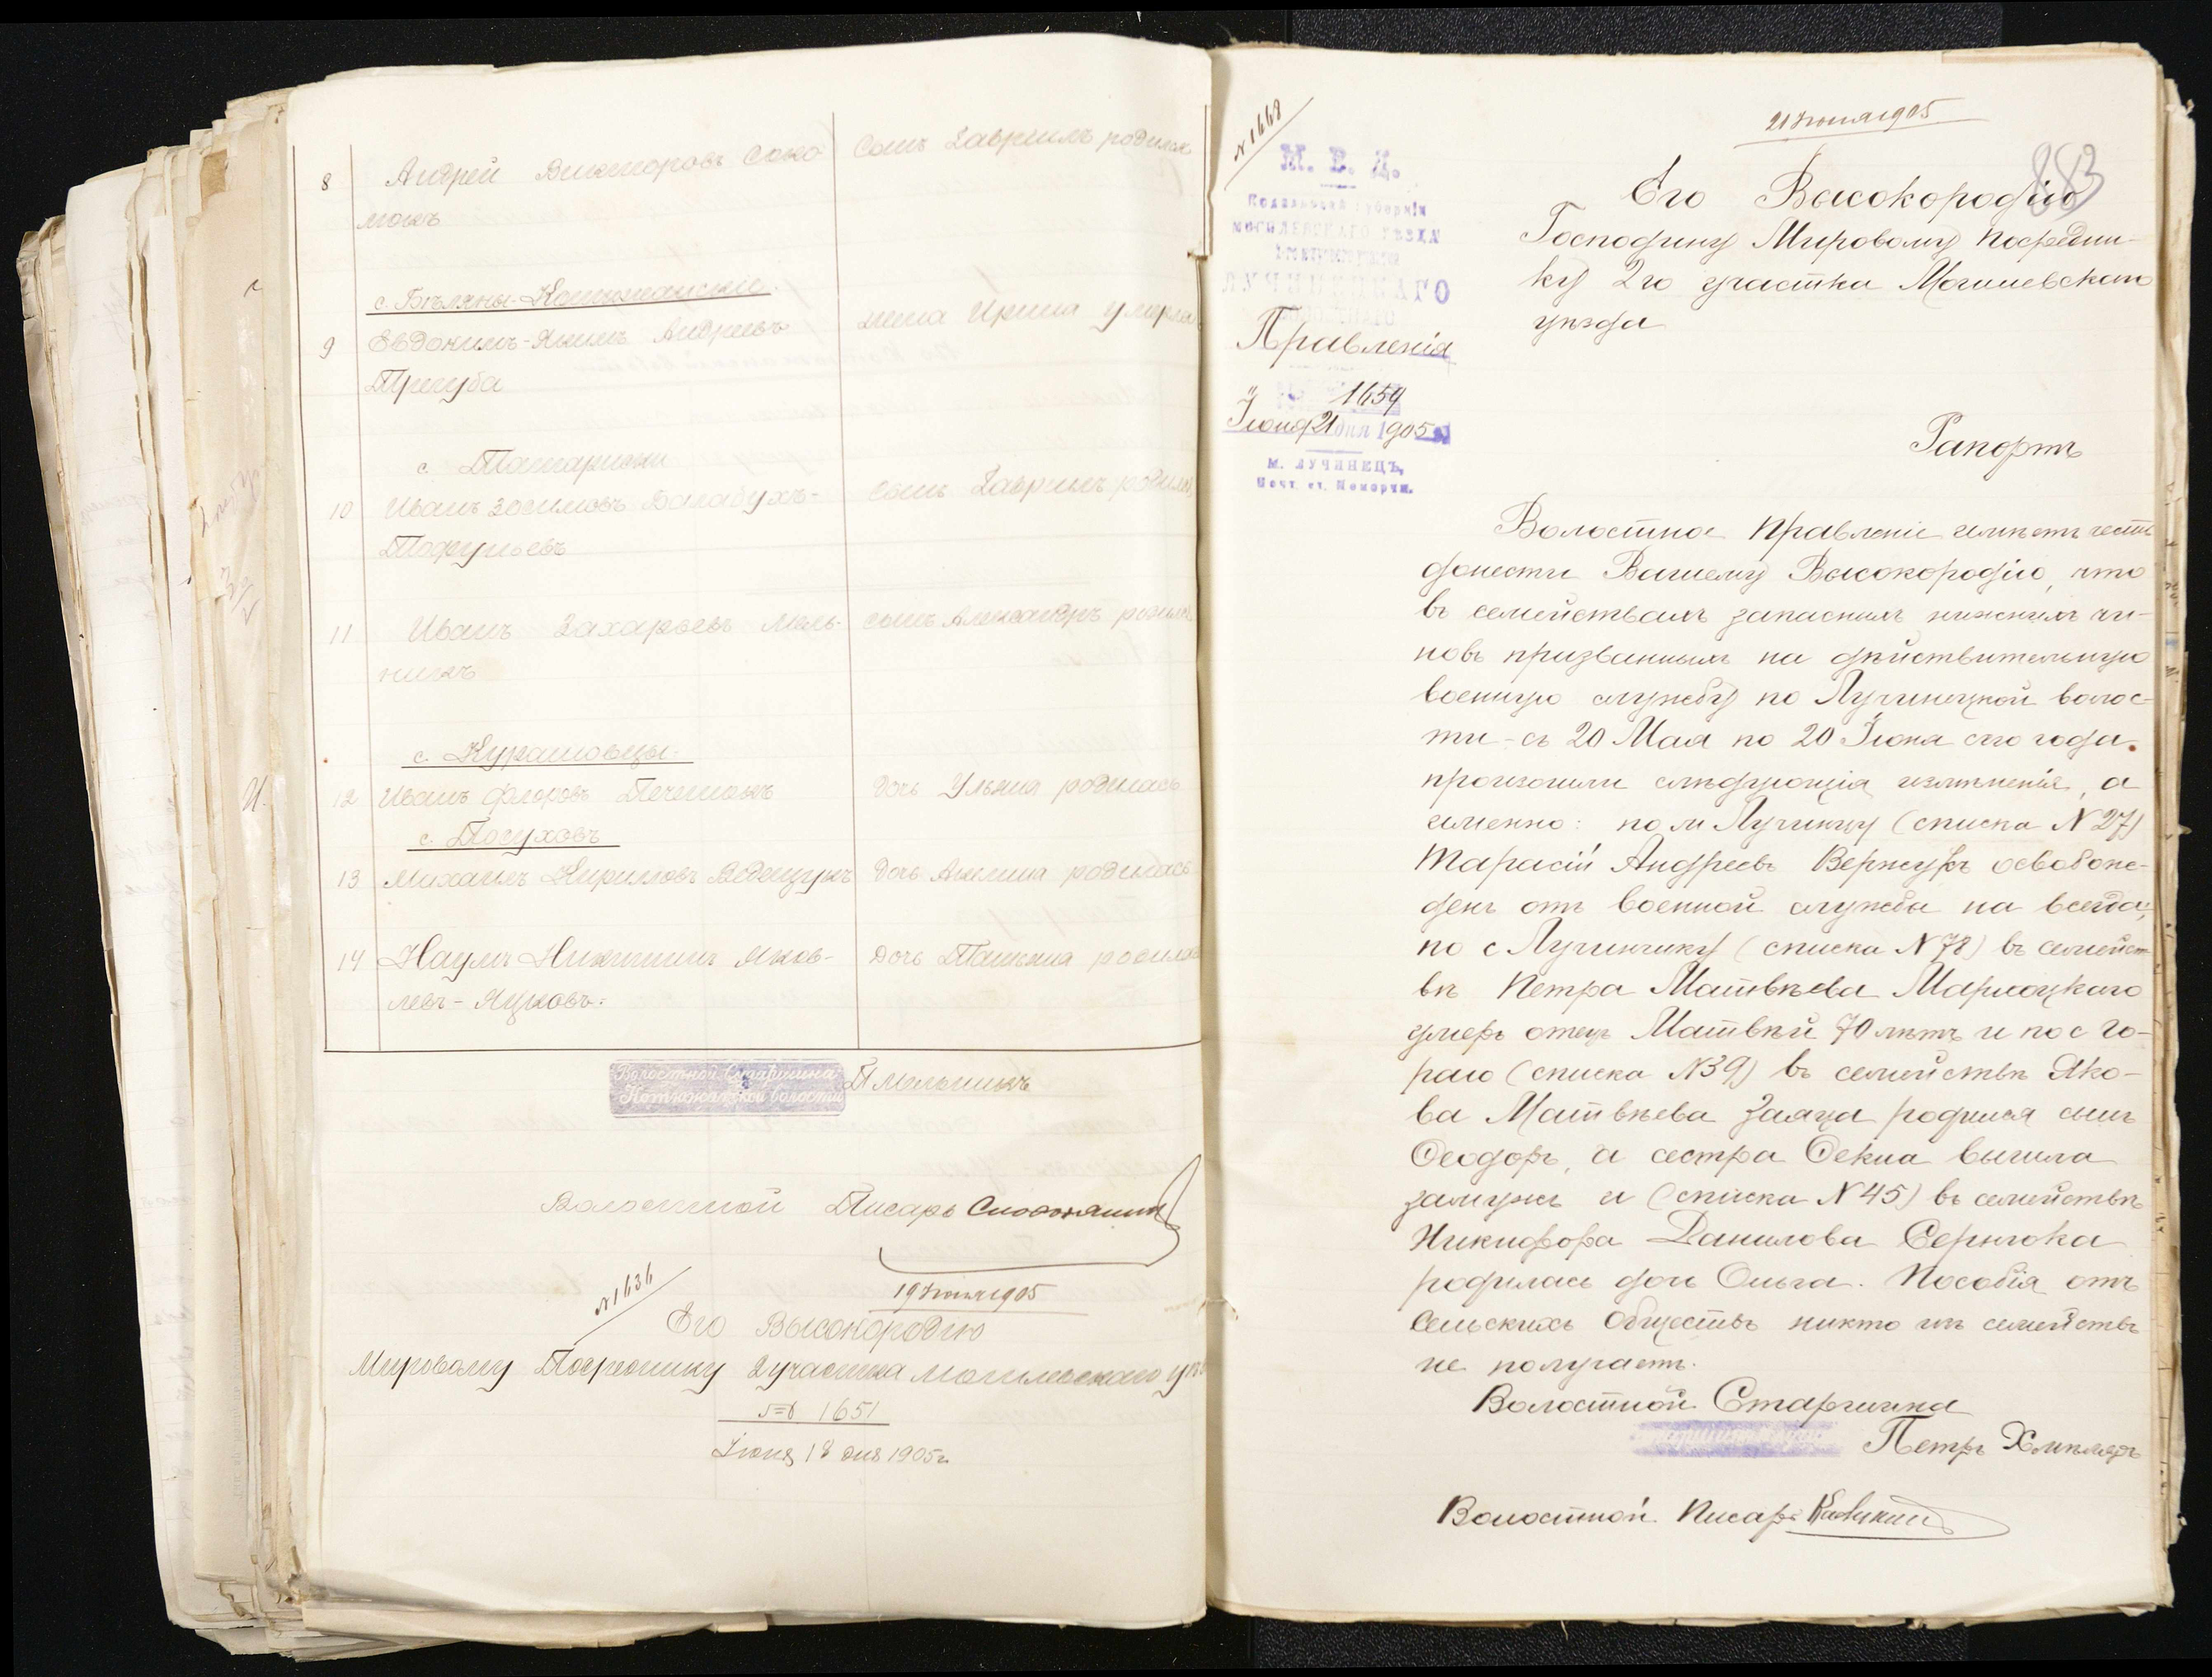 8 Андрей Викторовъ Соко Сынъ Гавриилъ родился
с. Бѣляны-Котюжанскіе.
9 Евдокимъ-Якимъ Андреевъ жена Ирина умерла
Трегуба
с. Татариски
10 Иванъ Зосимовъ Балабухъ- сынъ Гавриилъ родился
11 Иванъ Захарьевъ Мель- сынъ Александръ родился
никъ
с. Курашовцы.
12 Иванъ Флоровъ дочь Ульяна родилась
с. Посуховъ
13 Михаилъ Кирилловъ дочь родилась
14 Наумъ Никитинъ Яков- дочь Татьяна родилась
левъ-Яцковъ.
Волостной Старшина
Котюжанской волости
П Мельникъ
Волостной Писарь
N 1636
19 Іюня 1905
Его Высокородію
Мировому Посреднику 2 участка Могилевскаго уѣ
№ 1651
Іюня 18 дня 1905 г.
N 1668
21 Іюня 1905
883
М. В. Д.
Подольской губерніи
МОГИЛЕВСКАГО УѢЗДА
ЛУЧИНЕЦКАГО
ВОЛОСТНАГО
Правленія
1659
Іюня 21 дня 1905 г.
м. ЛУЧИНЕЦЪ,
Почт. ст.
Его Высокородію
Господину Мировому Посредни-
ку 2го участка Могилевскаго
уѣзда
Рапортъ
Волостное Правленіе имѣетъ честь
донести Вашему Высокородію, что
въ семействахъ запасныхъ нижнихъ чи-
новъ призванныхъ на дѣйствительную
военную службу по Лучинецкой волос-
ти - съ 20 Мая по 20 Іюня сего года
произошли слѣдующія измѣненія, а
именно: по м Лучинцу (списка N 27)
Тарасій Андреевъ Вержукъ освобож-
денъ отъ военной службы на всегда;
по с Лучинчику (списка N 78) въ семейст-
вѣ Петра Матвѣева Мармоцкаго
умеръ отецъ Матвѣй 70 лѣтъ и по с Го-
раю (списка N 39) въ семействѣ Яко-
ва Матвѣева Заяца родился сынъ
Ѳеодоръ, а сестра Ѳекла вышла
замужъ и (списка N 45) въ семействѣ
Никифора Данилова Сернюка
родилась дочь Ольга. Пособія отъ
Сельскихъ Обществъ никто изъ семействъ
не получаетъ.
Волостной Старшина
Петръ
Волостной Писарь